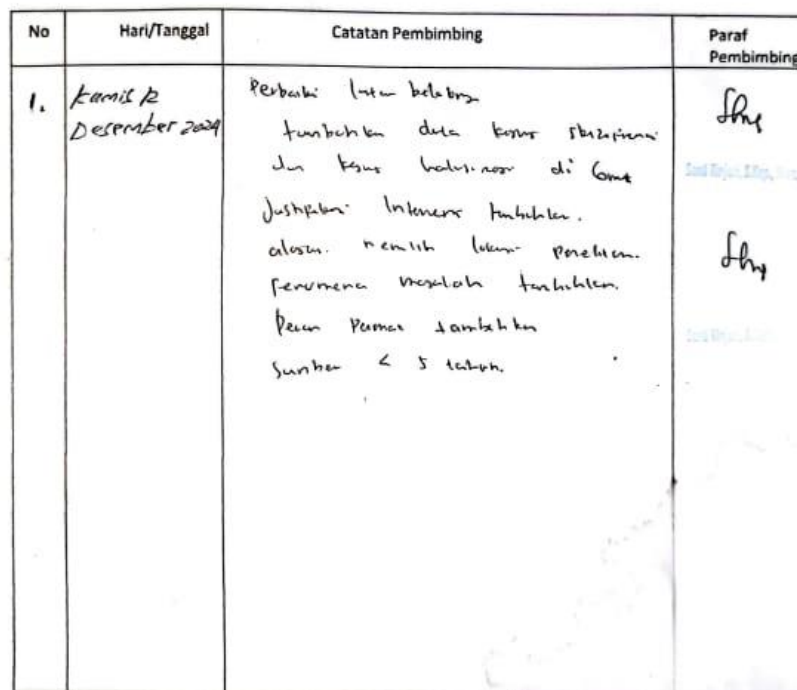 No Hari/Tanggal Catatan Pembimbing Paraf Pembimbing
1. Kamis 12 Desember 2024
Perbaiki latar belakang
tambahkan data kasus skizofrenia
dan kasus halusinasi di Garut
Justifikasi Intervensi tambahkan.
alasan memilih lokasi penelitian.
fenomena masalah tambahkan.
Peran Perawat tambahkan
Sumber < 5 tahun.